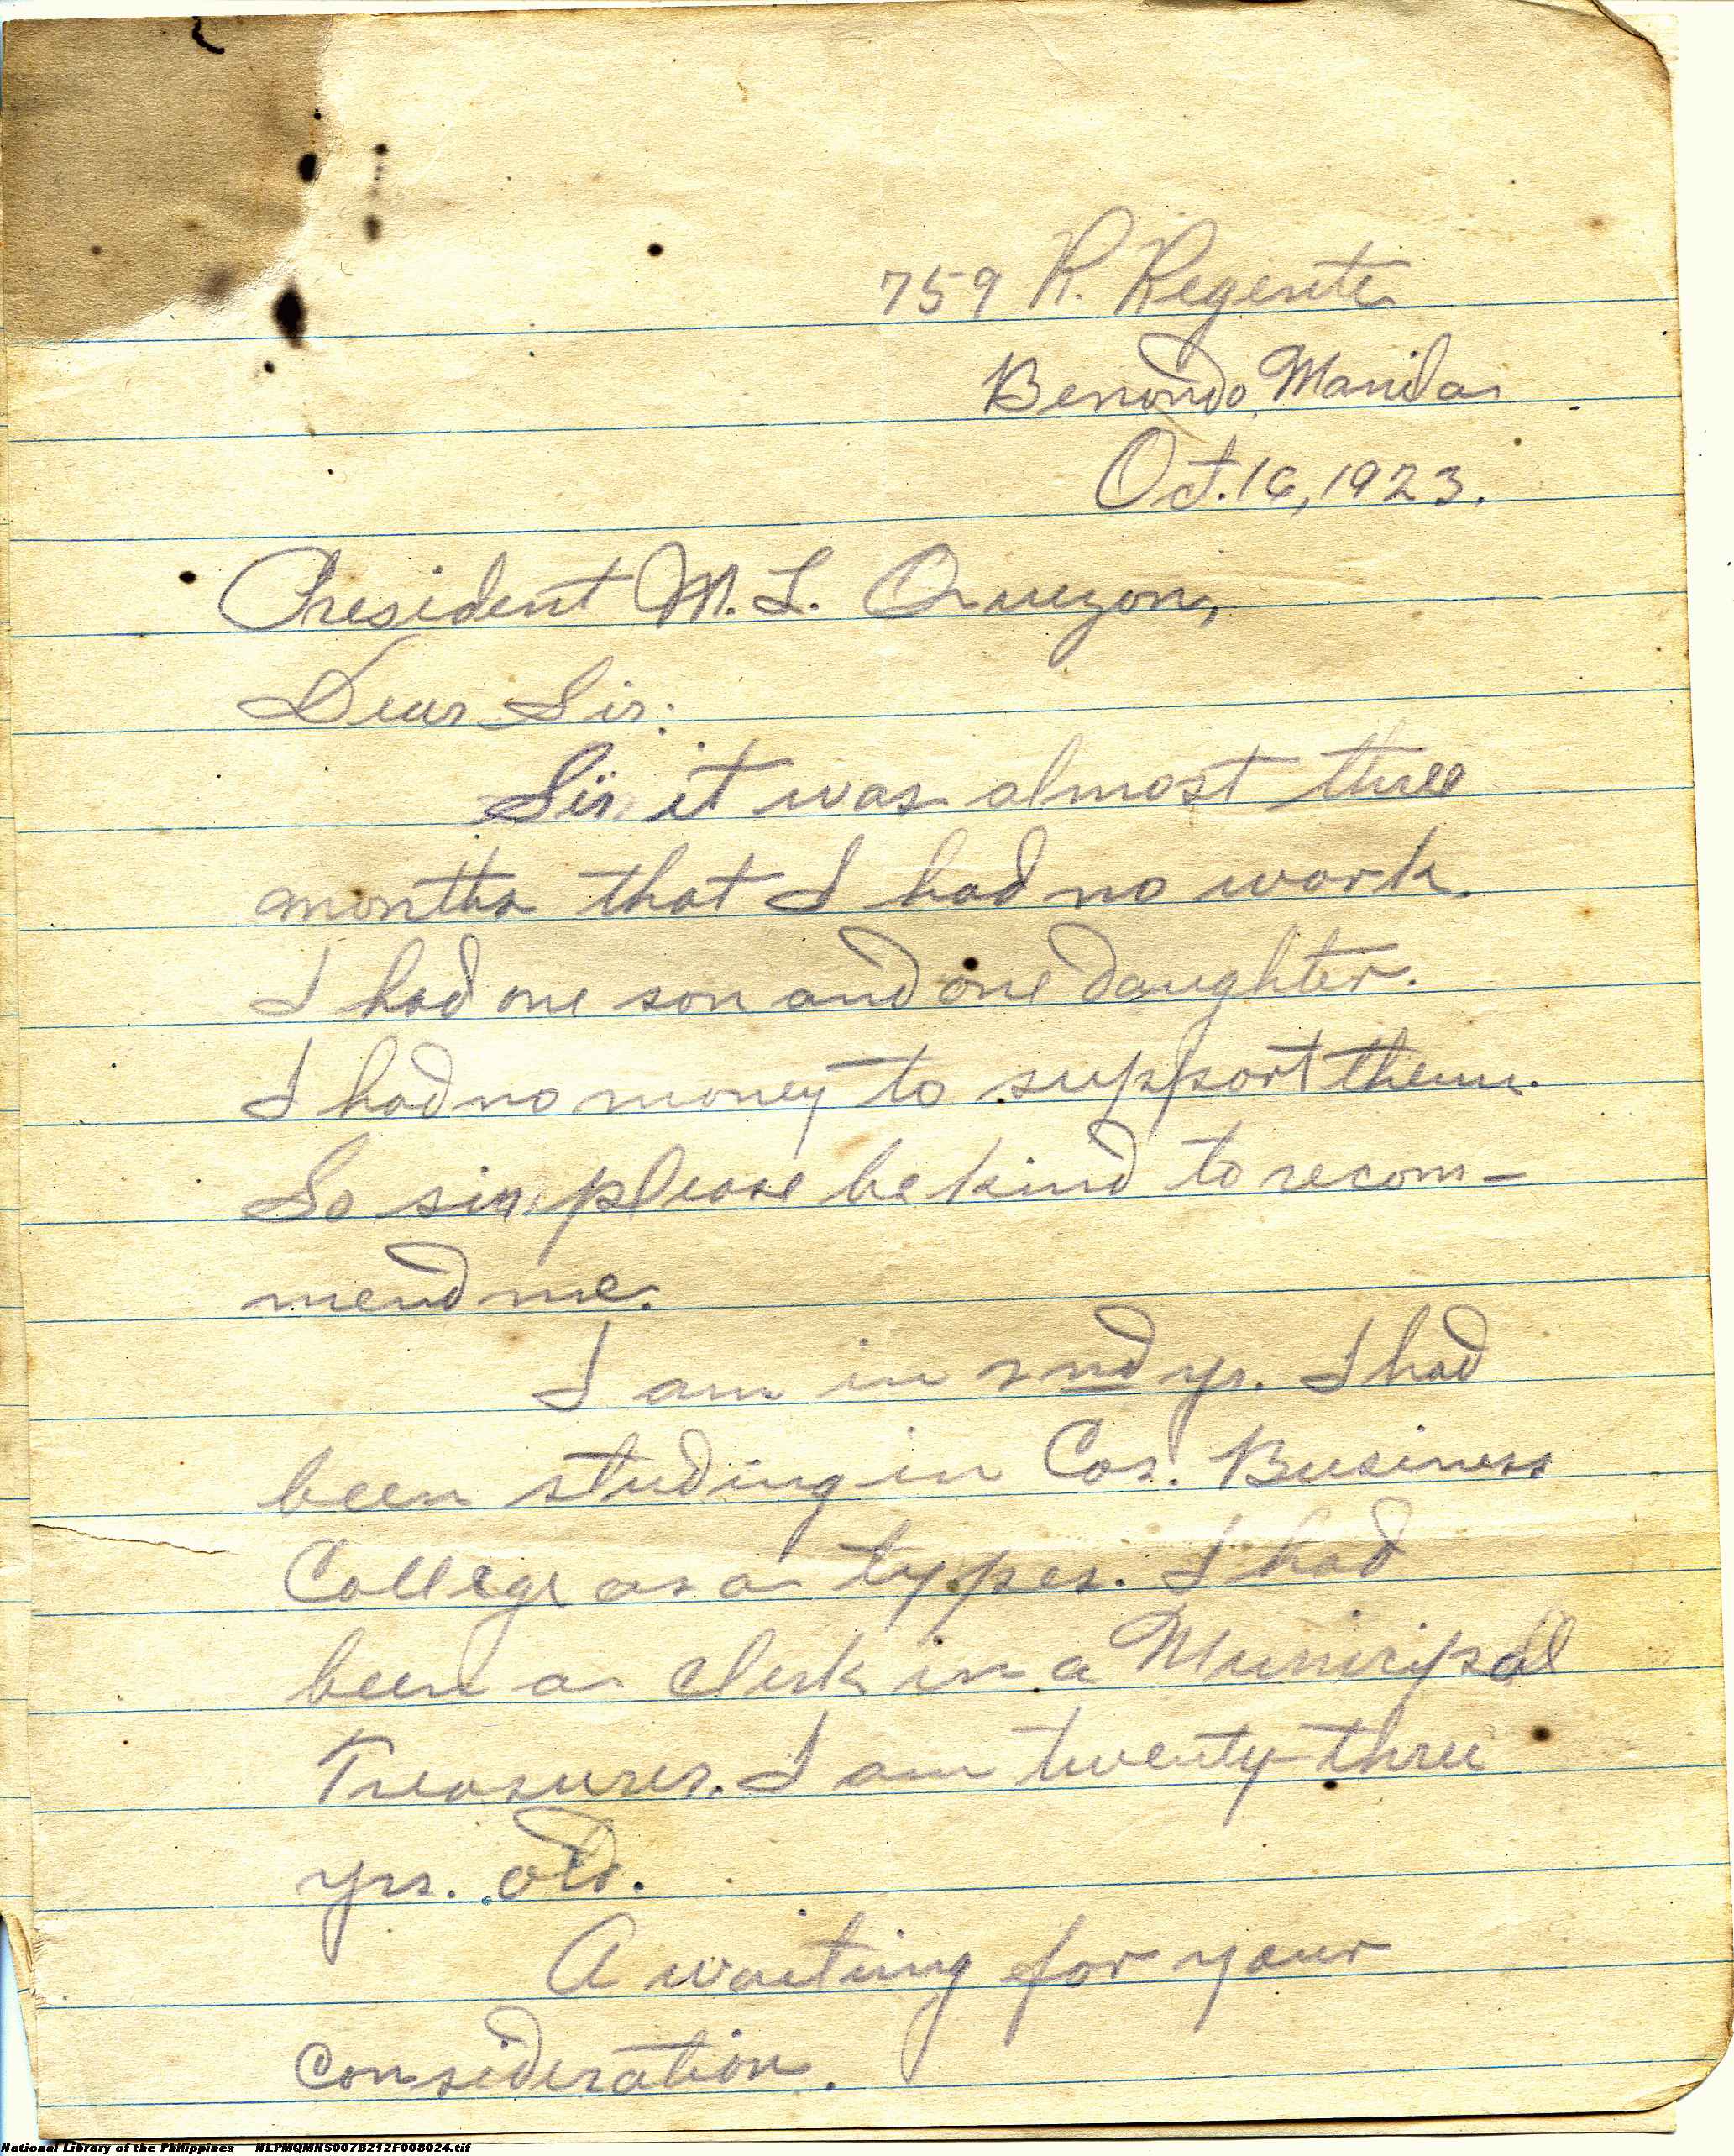 759 R. Regente
Benondo, Manila
Oct. 16, 1923.
President M. L. Quezon,
Dear Sir:
Sir, it was almost three
months that I had no work.
I had one son and one daughter.
I had no money to support them.
So sir, please be kind to recom-
mend me.
I am in 2nd yr. I had
been studing in Cos. Business
College as a types. I had
been a clerk in a Municipal
Treasurer. I am twenty three
yrs. old.
A waiting for your
consideration.
National Library of the Philippines NLPMQMNS007B212F008024.tif